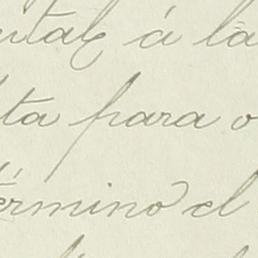 ental á la
ta para o
término el